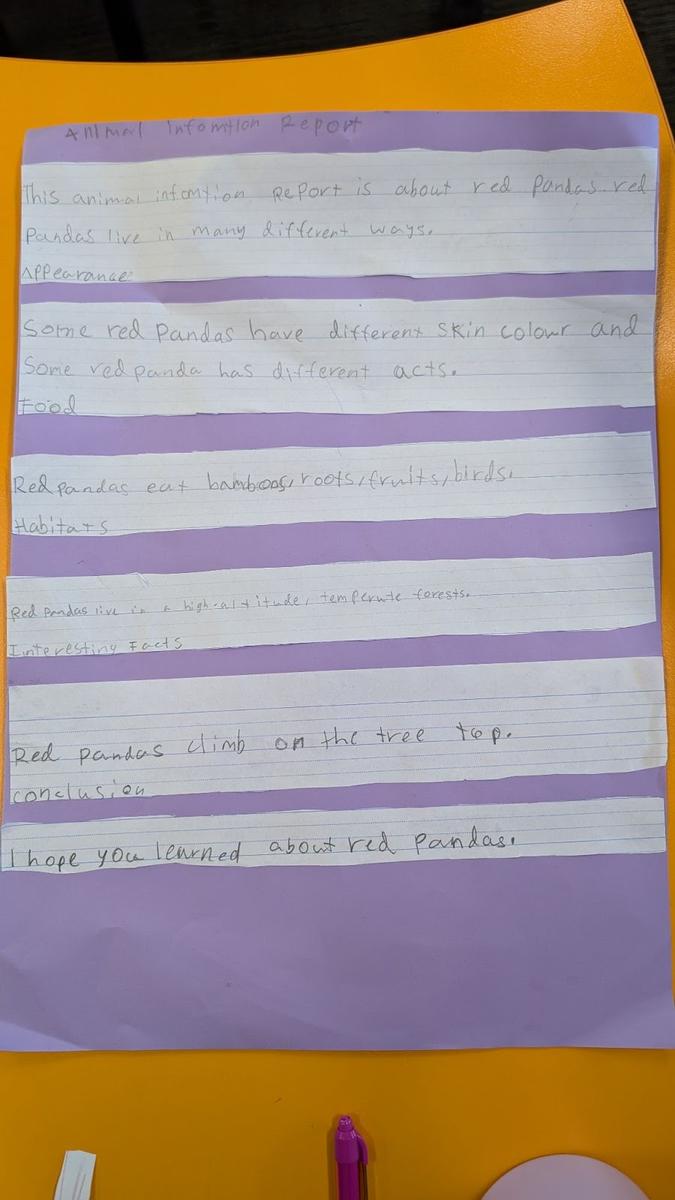 Animal Infomtion Report
This animal infomtion Report is about red Pandas. red
Pandas live in many different ways.
Appearance:
Some red Pandas have different skin colour and
Some red panda has different acts.
Food
Red pandas eat bamboos, roots, fruits, birds.
Habitats
Red Pandas live in a high-altitude, temperate forests.
Interesting Facts
Red pandas climb on the tree top.
conclusion
I hope you learned about red pandas.